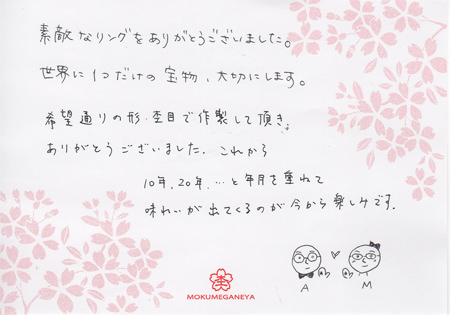 素敵なリングをありがとうございました。
世界に1つだけの宝物、大切にします。
希望通りの形・杢目で作製して頂き、
ありがとうございました。これから
10年、20年、…と年月を重ねて
味わいが出てくるのが今から楽しみです。
A M
MOKUMEGANEYA